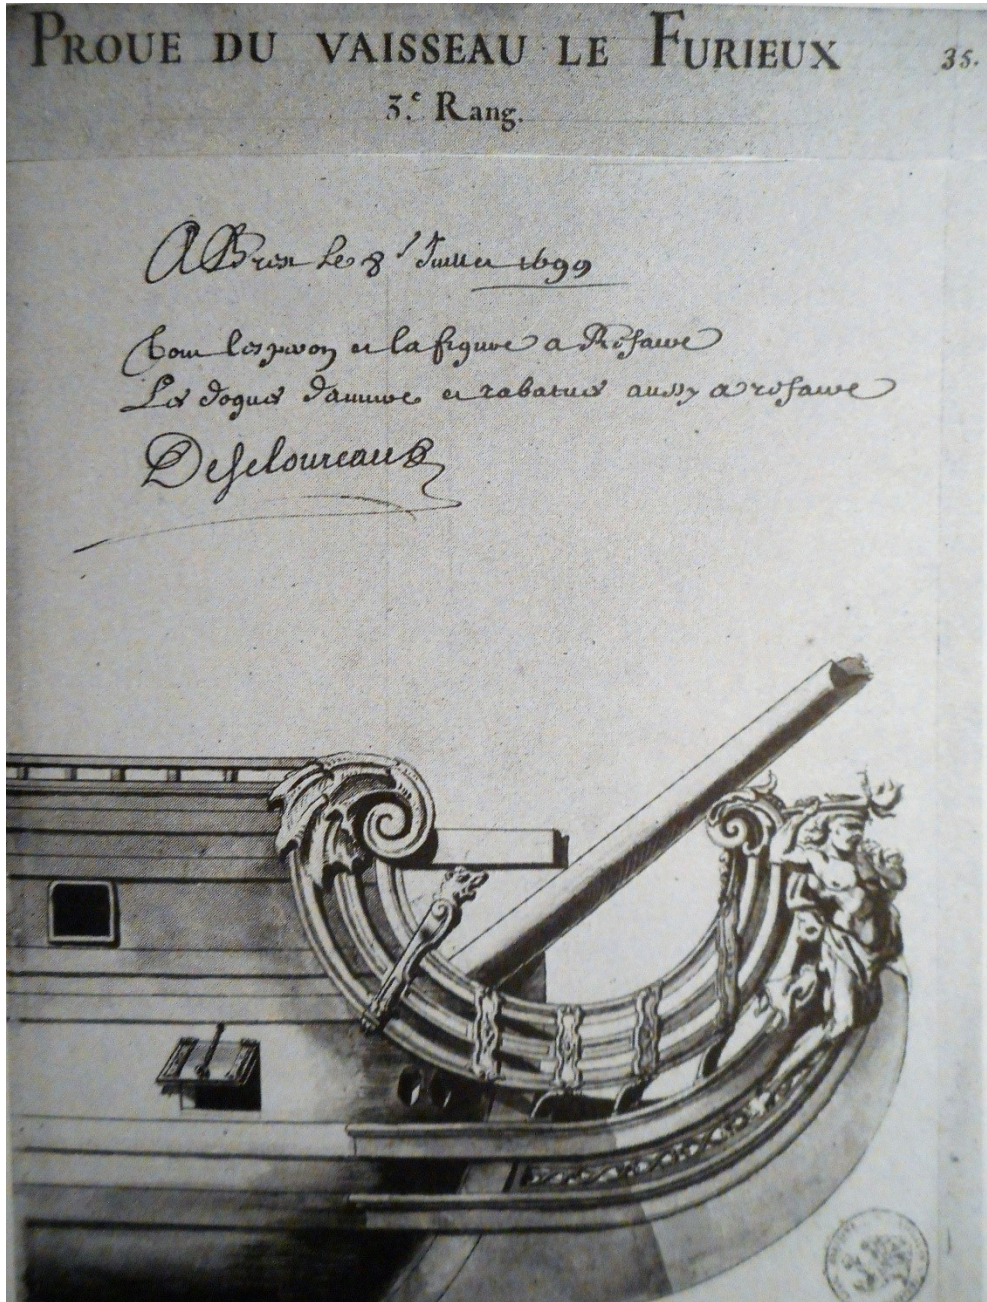 PROUE DU VAISSEAU LE FURIEUX
35.
3.e Rang.
A Brest Le 8e Juillet 1699
Tout lesperon et la figure a Refaire
Les dogues damure et rabatues aussy a refaire